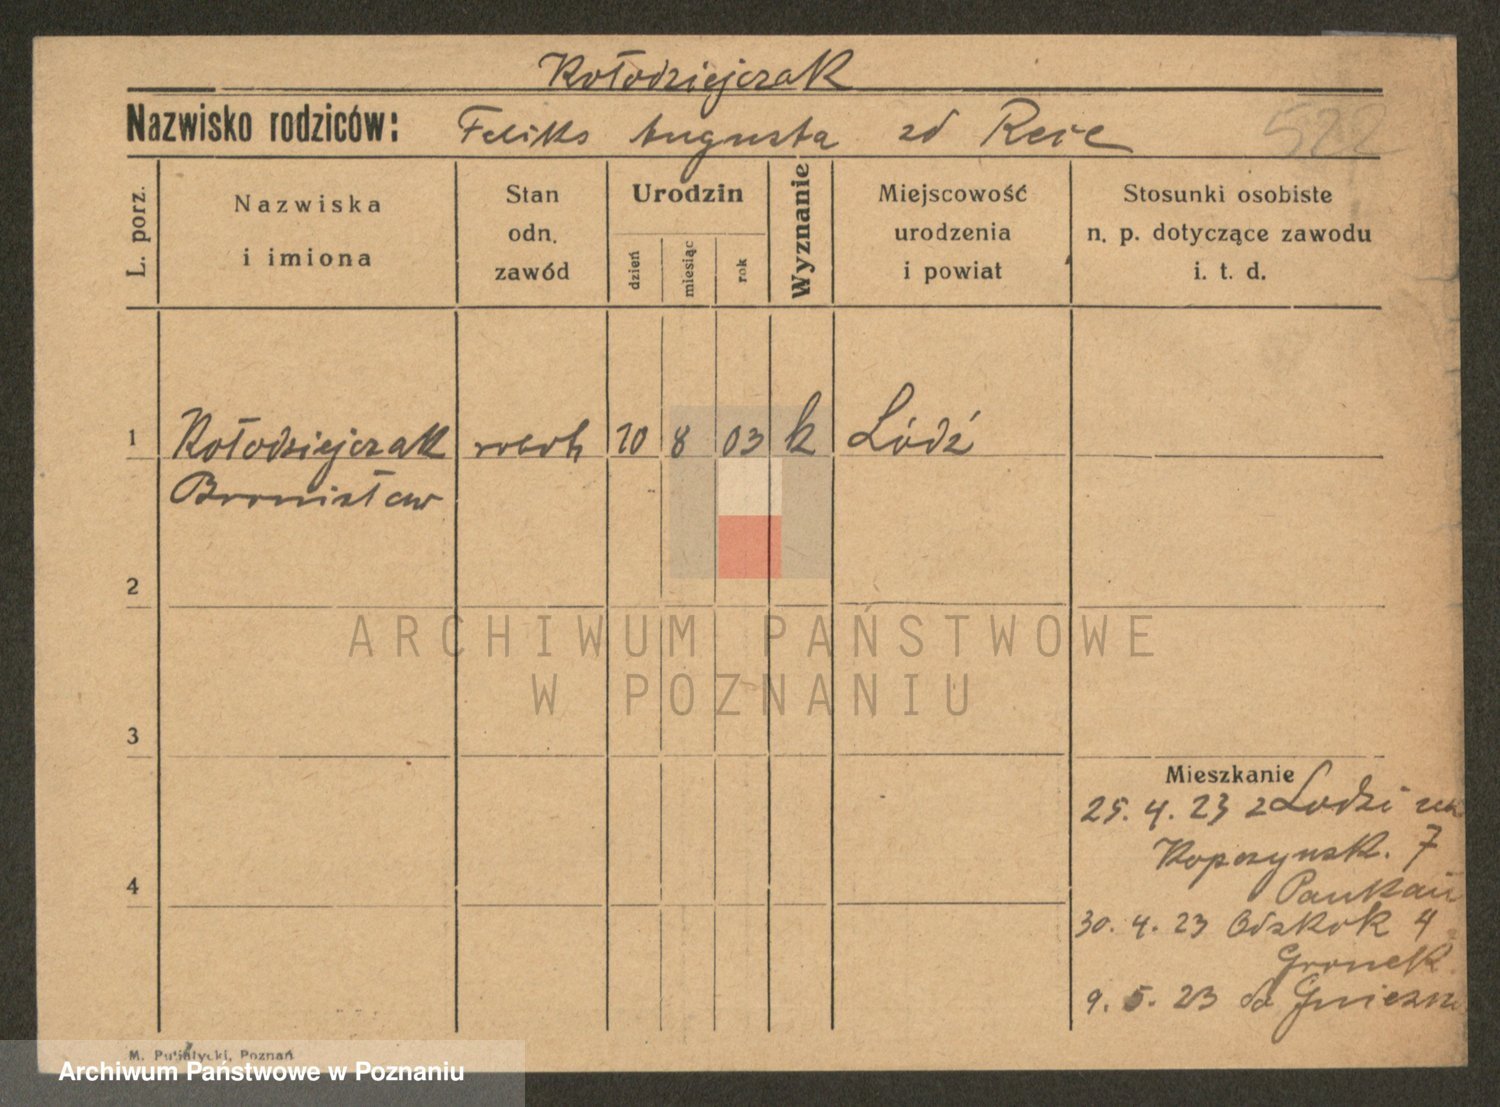 Kołodziejczak
Nazwisko rodziców: Feliks Augusta zd
522
L. porz.
Nazwiska
i imiona
Stan
odn.
zawód
Urodzin
dzień
miesiąc
rok
Wyznanie
Miejscowość
urodzenia
i powiat
Stosunki osobiste
n. p. dotyczące zawodu
i. t. d.
1 Kołodziejczak robotn 10 8 03 k Łódź
Bronisław
2
ARCHIWUM PAŃSTWOWE
W POZNANIU
3
Mieszkanie
25. 4. 23 z Lodzi
4
Kopczynsk. 7
30. 4. 23 4
Gronek
9. 5. 23 do Gniezn
M. Putiatycki, Poznań
Archiwum Państwowe w Poznaniu